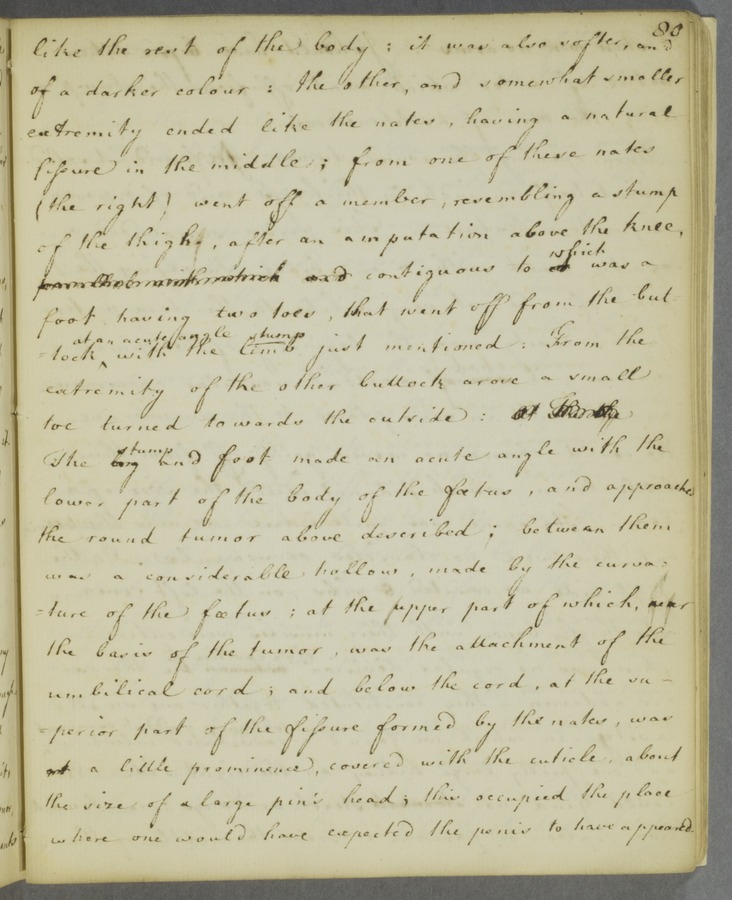 80
like the rest of the body : it was also softer, and
of a darker colour : the other, and somewhat smaller
extremity ended like the nates, having a natural
fissure in the middle ; from one of these nates
(the right) went off a member, resembling a stump
of the thigh, after an amputation above the knee,
and contiguous to which was a
foot having two toes, that went off from the but-
=tock at an acute angle with the limb stump just mentioned : From the
extremity of the other buttock arose a small
toe turned towards the outside :
The stump and foot made an acute angle with the
lower part of the body of the fœtus, and approached
the round tumor above described ; between them
was a considerable hollow, made by the curva-
=ture of the fœtus ; at the upper part of which, near
the basis of the tumor, was the attachment of the
umbilical cord ; and below the cord, at the su-
=perior part of the fissure formed by the nates, was
a little prominence, covered with the cuticle, about
the size of a large pin's head ; this occupied the place
where one would have expected the penis to have appeared.